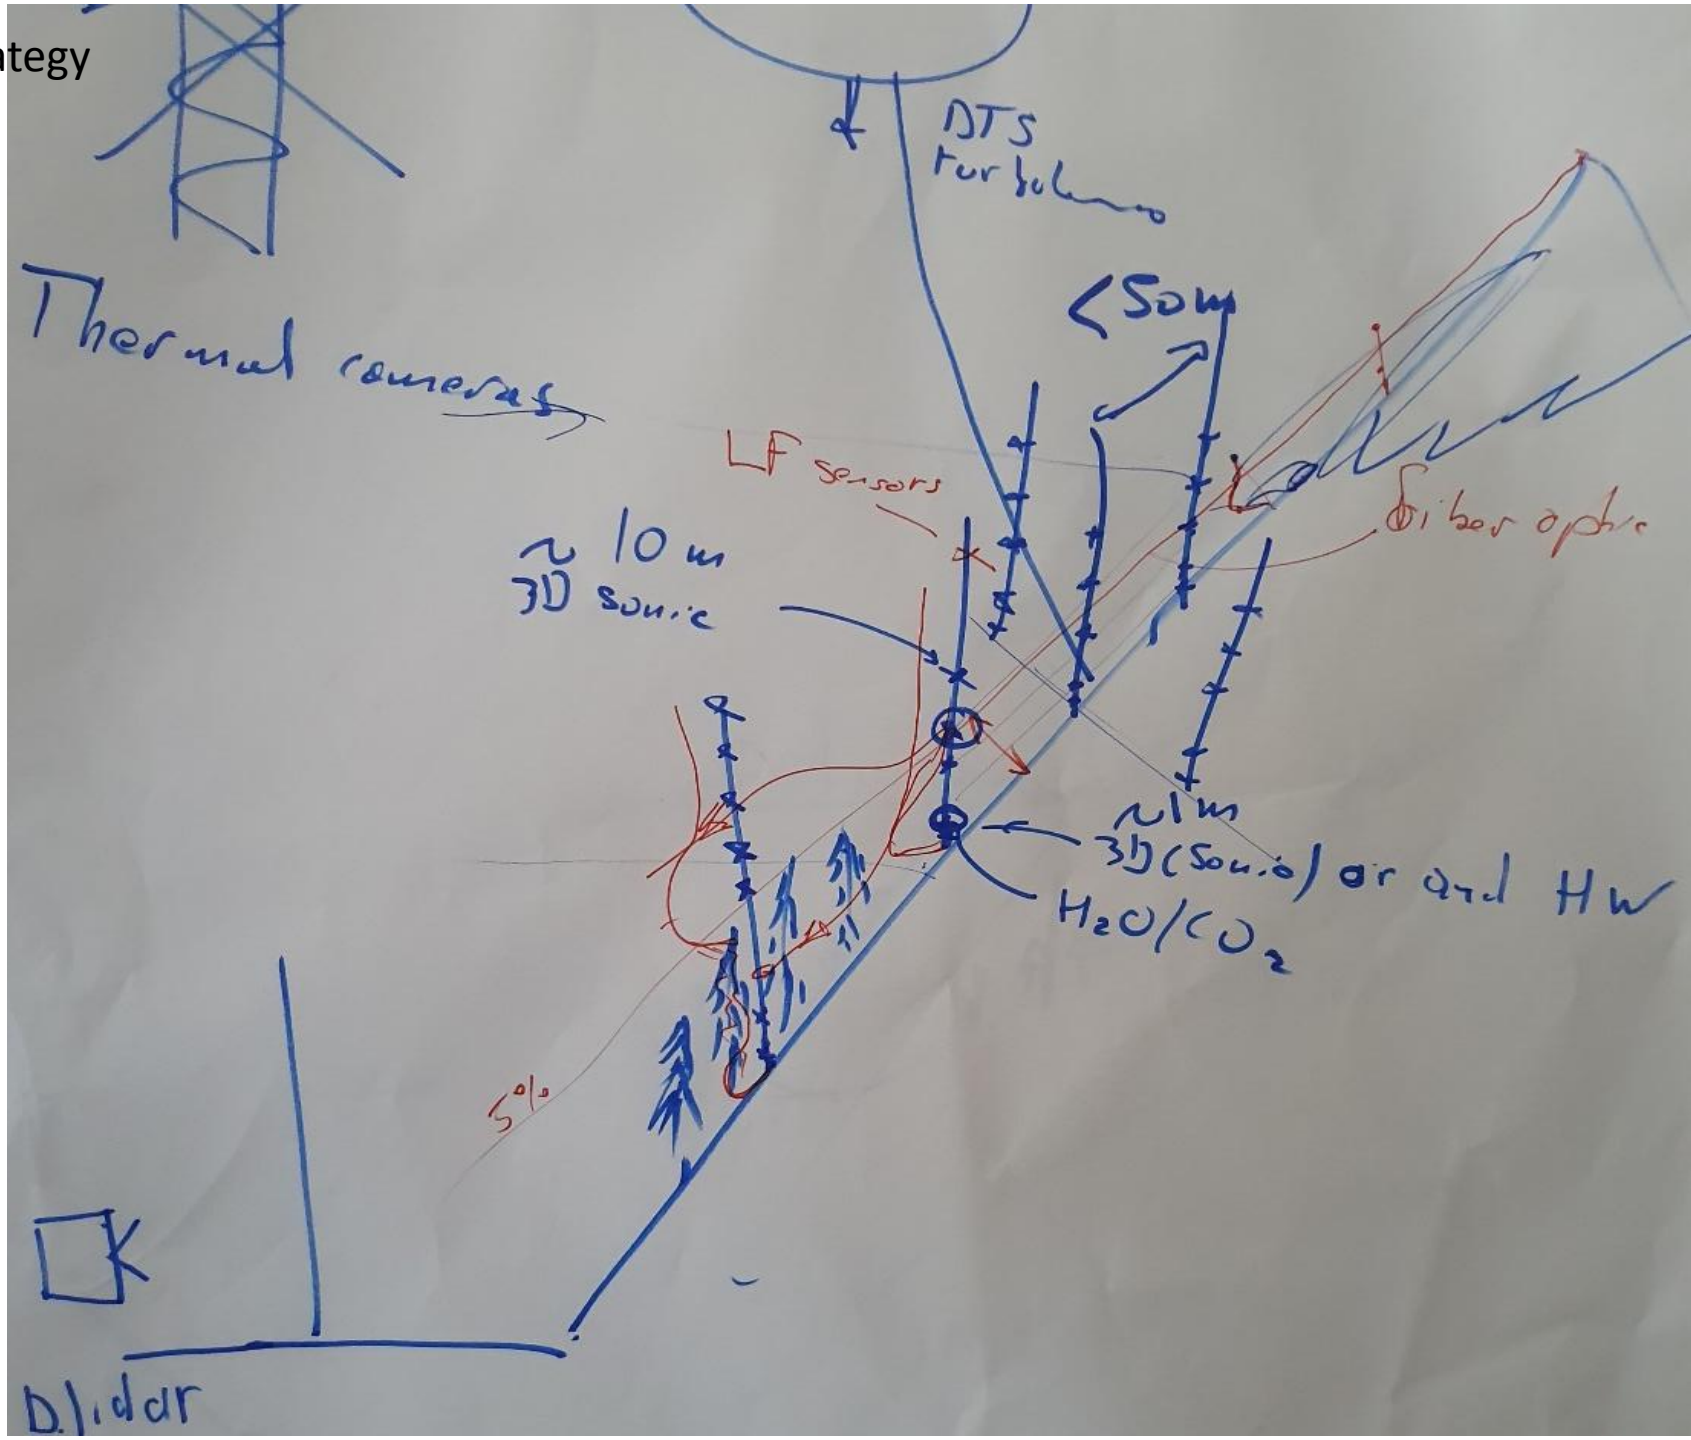 ategy
DTS
turbulence
Thermal cameras
<50m
LF sensors
fiber optic
~ 10 m
3D sonic
~1m
3D (Sonic) or and HW
H2O/CO2
5%
D.lidar